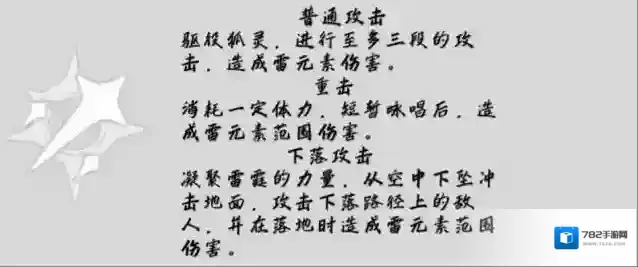 普通攻击
驱役狐灵，进行至多三段的攻
击，造成雷元素伤害。
重击
消耗一定体力，短暂咏唱后，造
成雷元素范围伤害。
下落攻击
凝聚雷霆的力量，从空中下坠冲
击地面，攻击下落路径上的敌
人，并在落地时造成雷元素范围
伤害。
782手游网